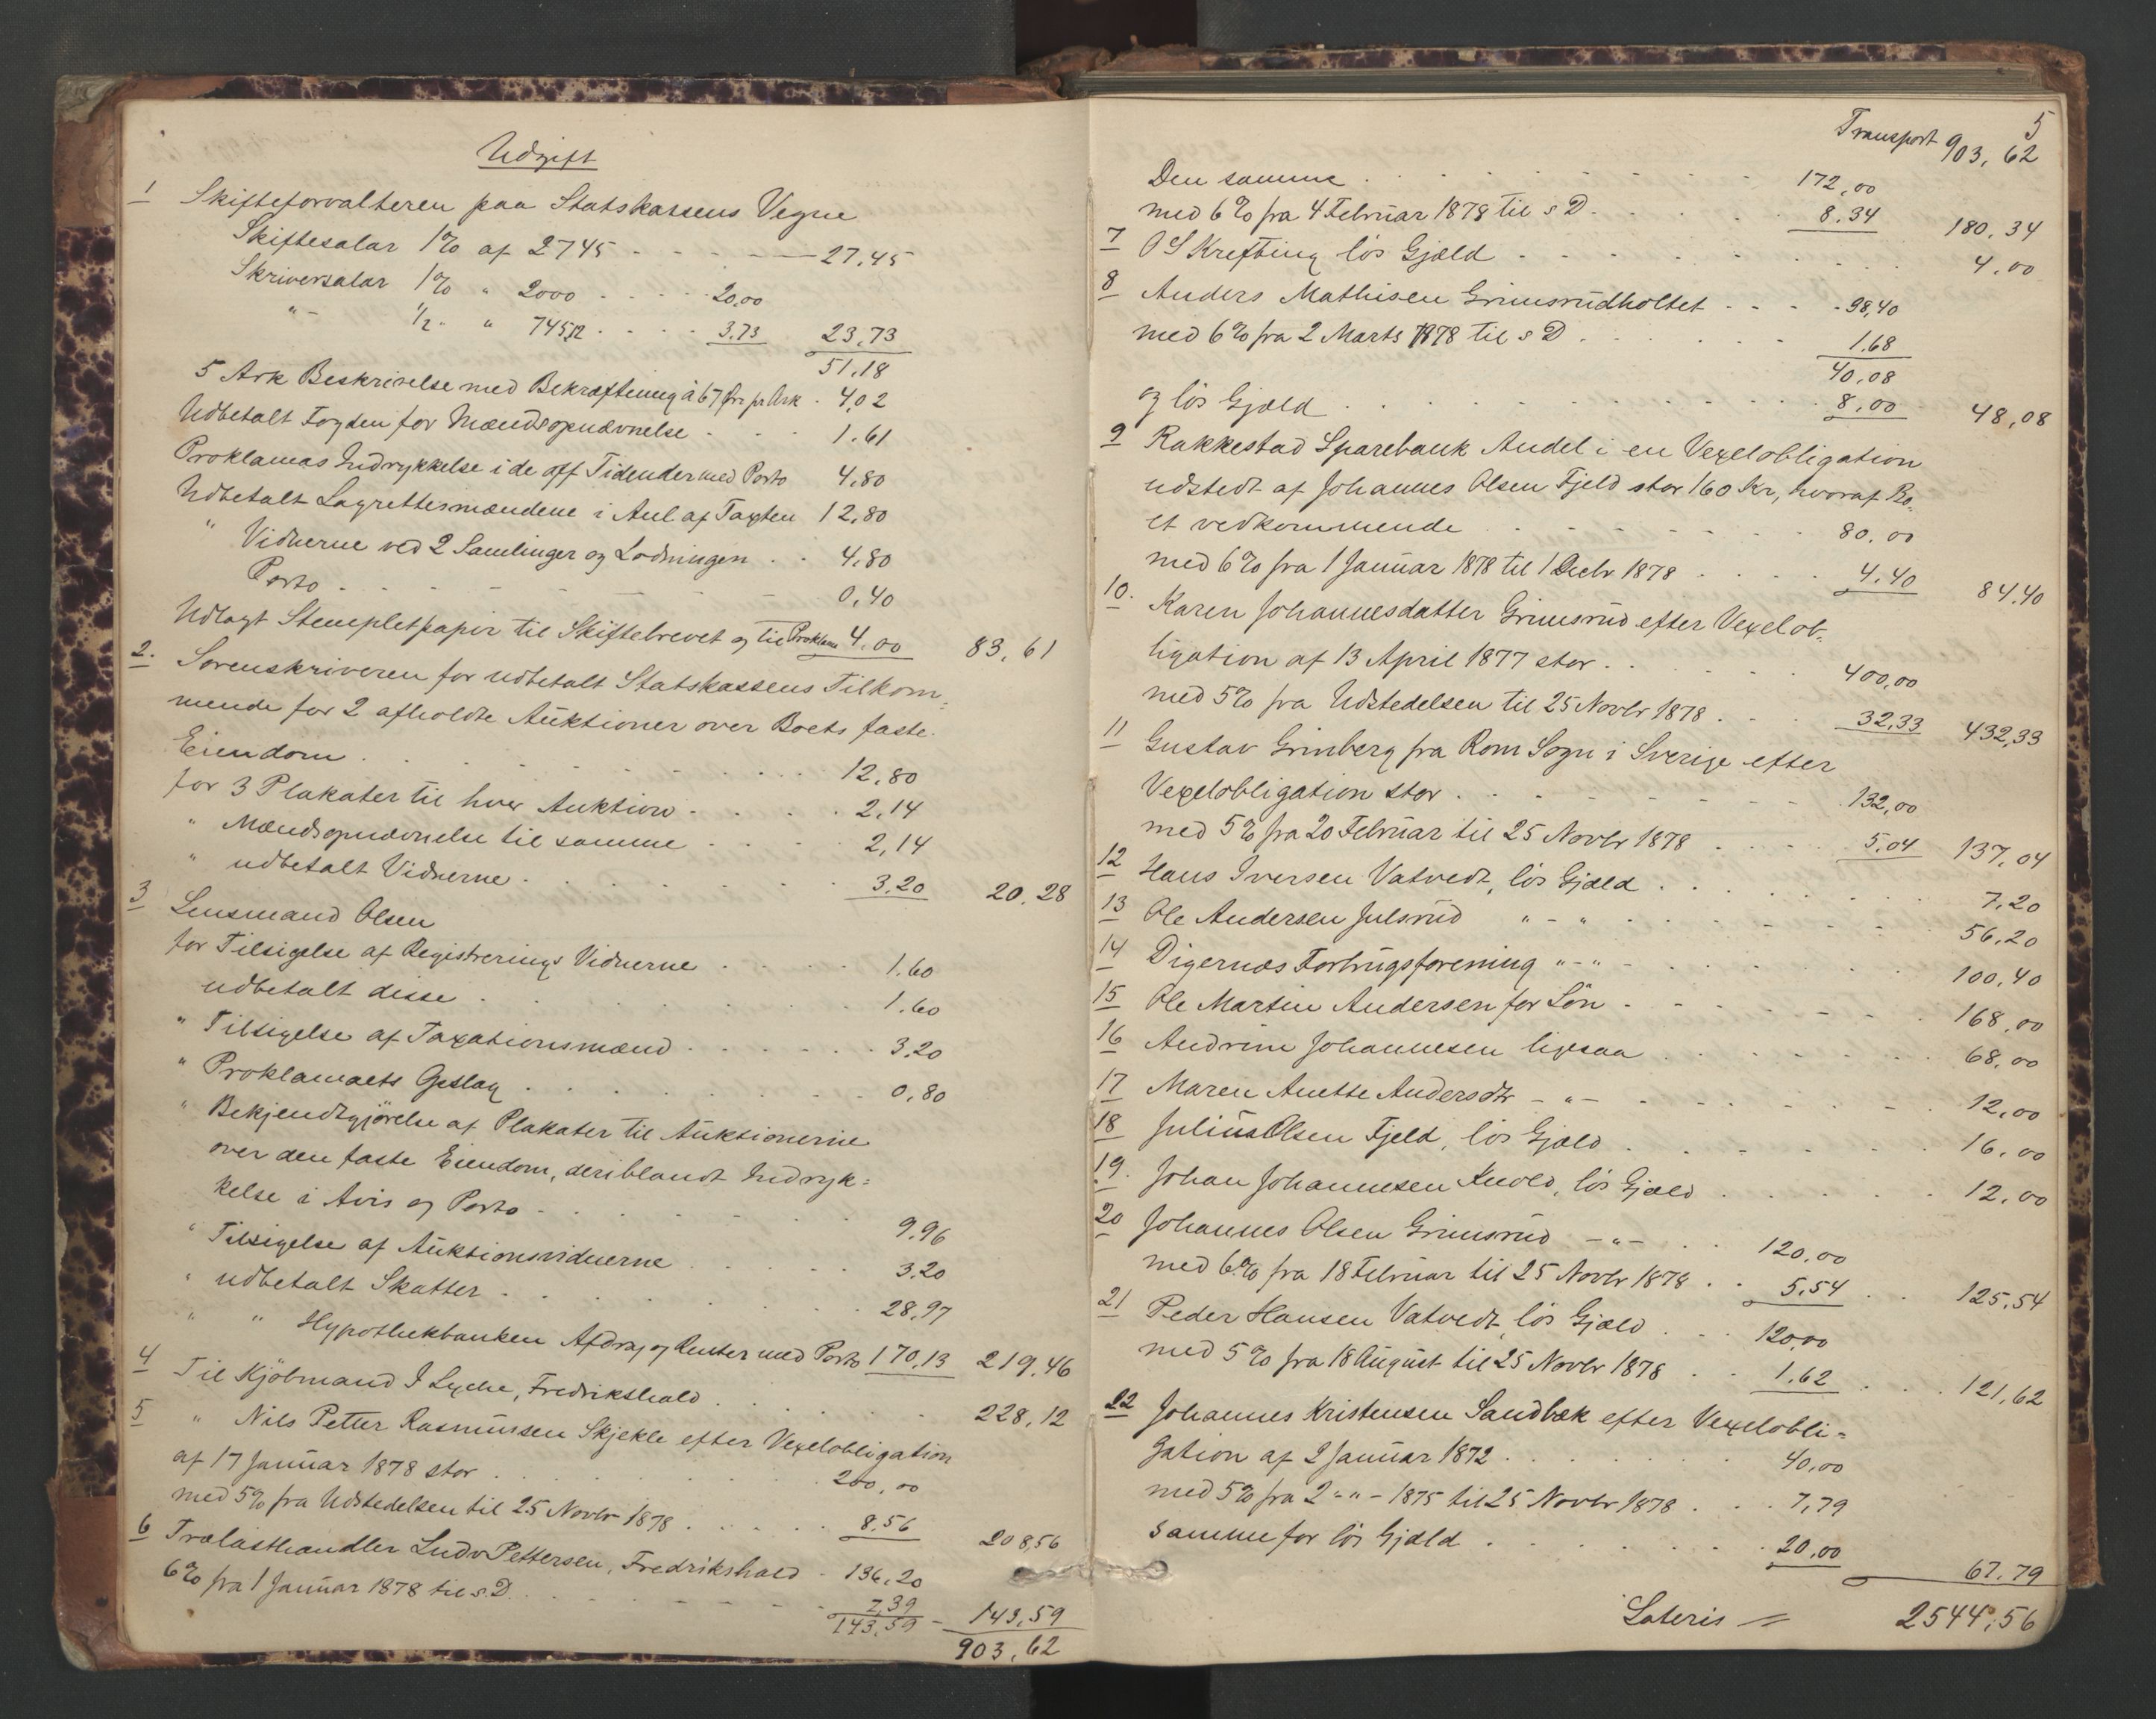 Udgift
1 Skifteforvalteren paa Statskassens Vegne
Skiftesalar 1% af 2745 - - - - 27,45
Skriversalar 1% " 2000 . . . . 20,00
" - 1/2 " " 745,52 . . . . 3,73 23,73
51,18
5 Ark Beskrivelse med Bekræftning à 67 Øre pr Ark . 4,02
Udbetalt Fogden for Mændsopnævnelse . . . 1.61
Proklamas Indrykkelse i de off Tidender med Porto 4,80
Udbetalt Lagrettesmændene i Anl af Taxten 12,80
" Vidnerne ved 2 Samlinger og Lodningen . . 4,80
Porto . . . . 0,40
Udlagt Stempletpapir til Skiftebrevet og til Proklama 4,00 83,61
2. Sorenskriveren for udbetalt Statskassens Tilkom-
mende for 2 afholdte Auktioner over Boets faste
Eiendom . . . . 12,80
for 3 Plakater til hver Auktion . . . . 2,14
" Mændsopnævnelse til samme . . . . 2,14
" udbetalt Vidnerne . . . . 3,20 20,28
3 Lensmand Olsen
for Tilsigelse af Registrerings Vidnerne . . . . 1.60
udbetalt disse . . . . 1.60
" Tilsigelse af Taxationsmænd . . . . 3,20
" Proklamaets Opslag . . . . 0,80
" Bekjendtgjørelse af Plakater til Auktionerne
over den faste Eiendom, deriblandt Indryk=
kelse i Avis og Porto . . . . 9,96
" Tilsigelse af Auktionsvidnerne . . . . 3,20
" udbetalt Skatter . . . . 28,97
" " Hypothekbanken Afdrag og Renter med Porto 170,13 219,46
4 Til Kjøbmand I Lyche, Fredrikshald . . . . 228,12
5 " Nils Petter Rasmussen Skjekle efter Vexelobligation
af 17 Januar 1878 stor . . . . 200,00
med 5% fra Udstedelsen til 25 Novbr 1878 . . . . 8,56 208,56
6 Trælasthandler Ludv Pettersen, Fredrikshald . 136,20
6% fra 1 Januar 1878 til s.D. . . . . 7,39
143,59 - 143,59
903,62
5
Transport 903,62
Den samme . . . . 172,00
med 6% fra 4 Februar 1878 til s D. . . . . 8,34 180,34
7 O S Krefting løs Gjæld . . . . 4,00
8 Anders Mathisen Grimsrudholtet . . . . 38,40
med 6% fra 2 Marts 1878 til s D . . . . 1.68
40,08
og løs Gjæld . . . . 8,00 48,08
9 Rakkestad Sparebank Andel i en Vexelobligation
udstedt af Johannes Olsen Fjeld stor 160 Kr, hvoraf Bo-
et vedkommende . . . . 80,00
med 6% fra 1 Januar 1878 til 1 Decbr 1878 . . . . 4,40 84,40
10. Karen Johannesdatter Grimsrud efter Vexelob-
ligation af 13 April 1877 stor . . . . 400,00
med 5% fra Udstedelsen til 25 Novbr 1878 . . . . 32,33 432,33
11 Gustav Grinberg fra Rom Sogn i Sverige efter
Vexelobligation stor . . . . 132,00
med 5% fra 20 Februar til 25 Novbr 1878 . . . . 5,04 137,04
12 Hans Iversen Vatvedt, løs Gjæld . . . . 7,20
13 Ole Andersen Julsrud " - " . . . . 56,20
14 Digernæs Forbrugsforening " - " . . . . 100,40
15 Ole Martin Andersen for Løn . . . . 168,00
16 Andrine Johannesen ligesaa . . . . 68,00
17 Maren Anette Andersdtr - " - . . . . 12,00
18 Julius Olsen Fjeld, løs Gjæld . . . . 16,00
19. Johan Johannesen Knold, løs Gjæld . . . . 12,00
20 Johannes Olsen Grimsrud - " - . . 120,00
med 6% fra 18 Februar til 25 Novbr 1878 . . 5,54 . . 125,54
21 Peder Hansen Vatvedt, løs Gjæld . . . 120,00
med 5% fra 18 August til 25 Novbr 1878 . . 1,62 . . . 121,62
22 Johannes Kristensen Sandbæk efter Vexelobli=
gation af 2 Januar 1872 . . . . 40,00
med 5% fra 2 - " - 1875 til 25 Novbr 1878 . . . 7,79
samme for løs Gjæld . . . . 20,00 67,79
Lateris = 2544,56